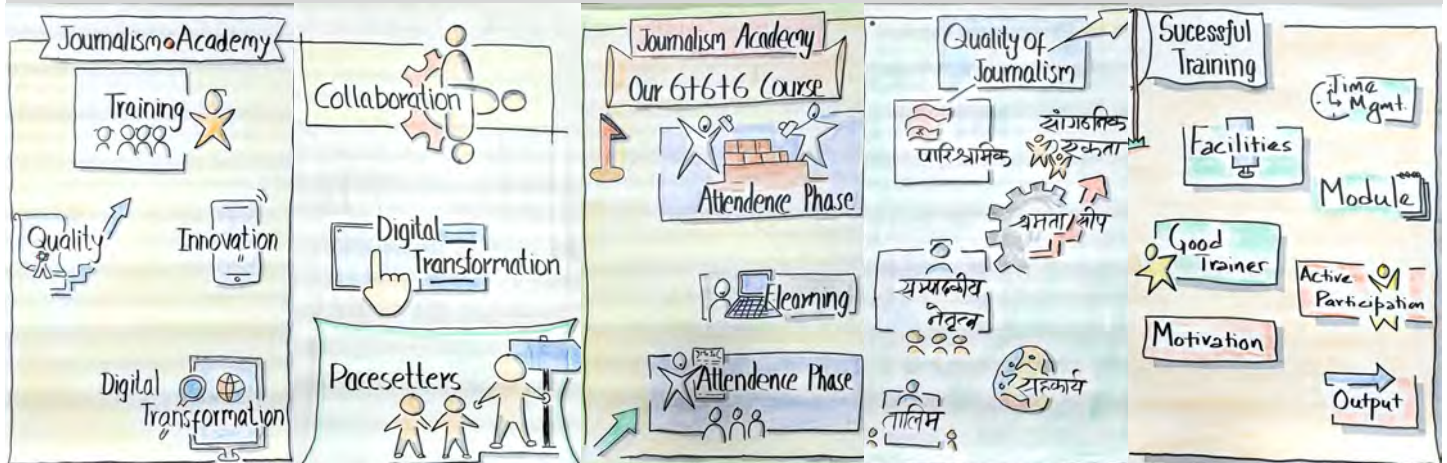 Journalism Academy
Training
Quality
Innovation
Digital
Transformation
Collaboration
Digital
Transformation
Pacesetters
Journalism Academy
Our 6+6+6 Course
Attendence Phase
Elearning
Attendence Phase
Quality of
Journalism
पारिश्रमिक
सांगठनिक
एकता
क्षमता/सीप
सम्पादकीय
नेतृत्व
सहकार्य
तालिम
Sucessful
Training
Time
Mgmt.
Facilities
Module
Good
Trainer
Active
Participation
Motivation
Output